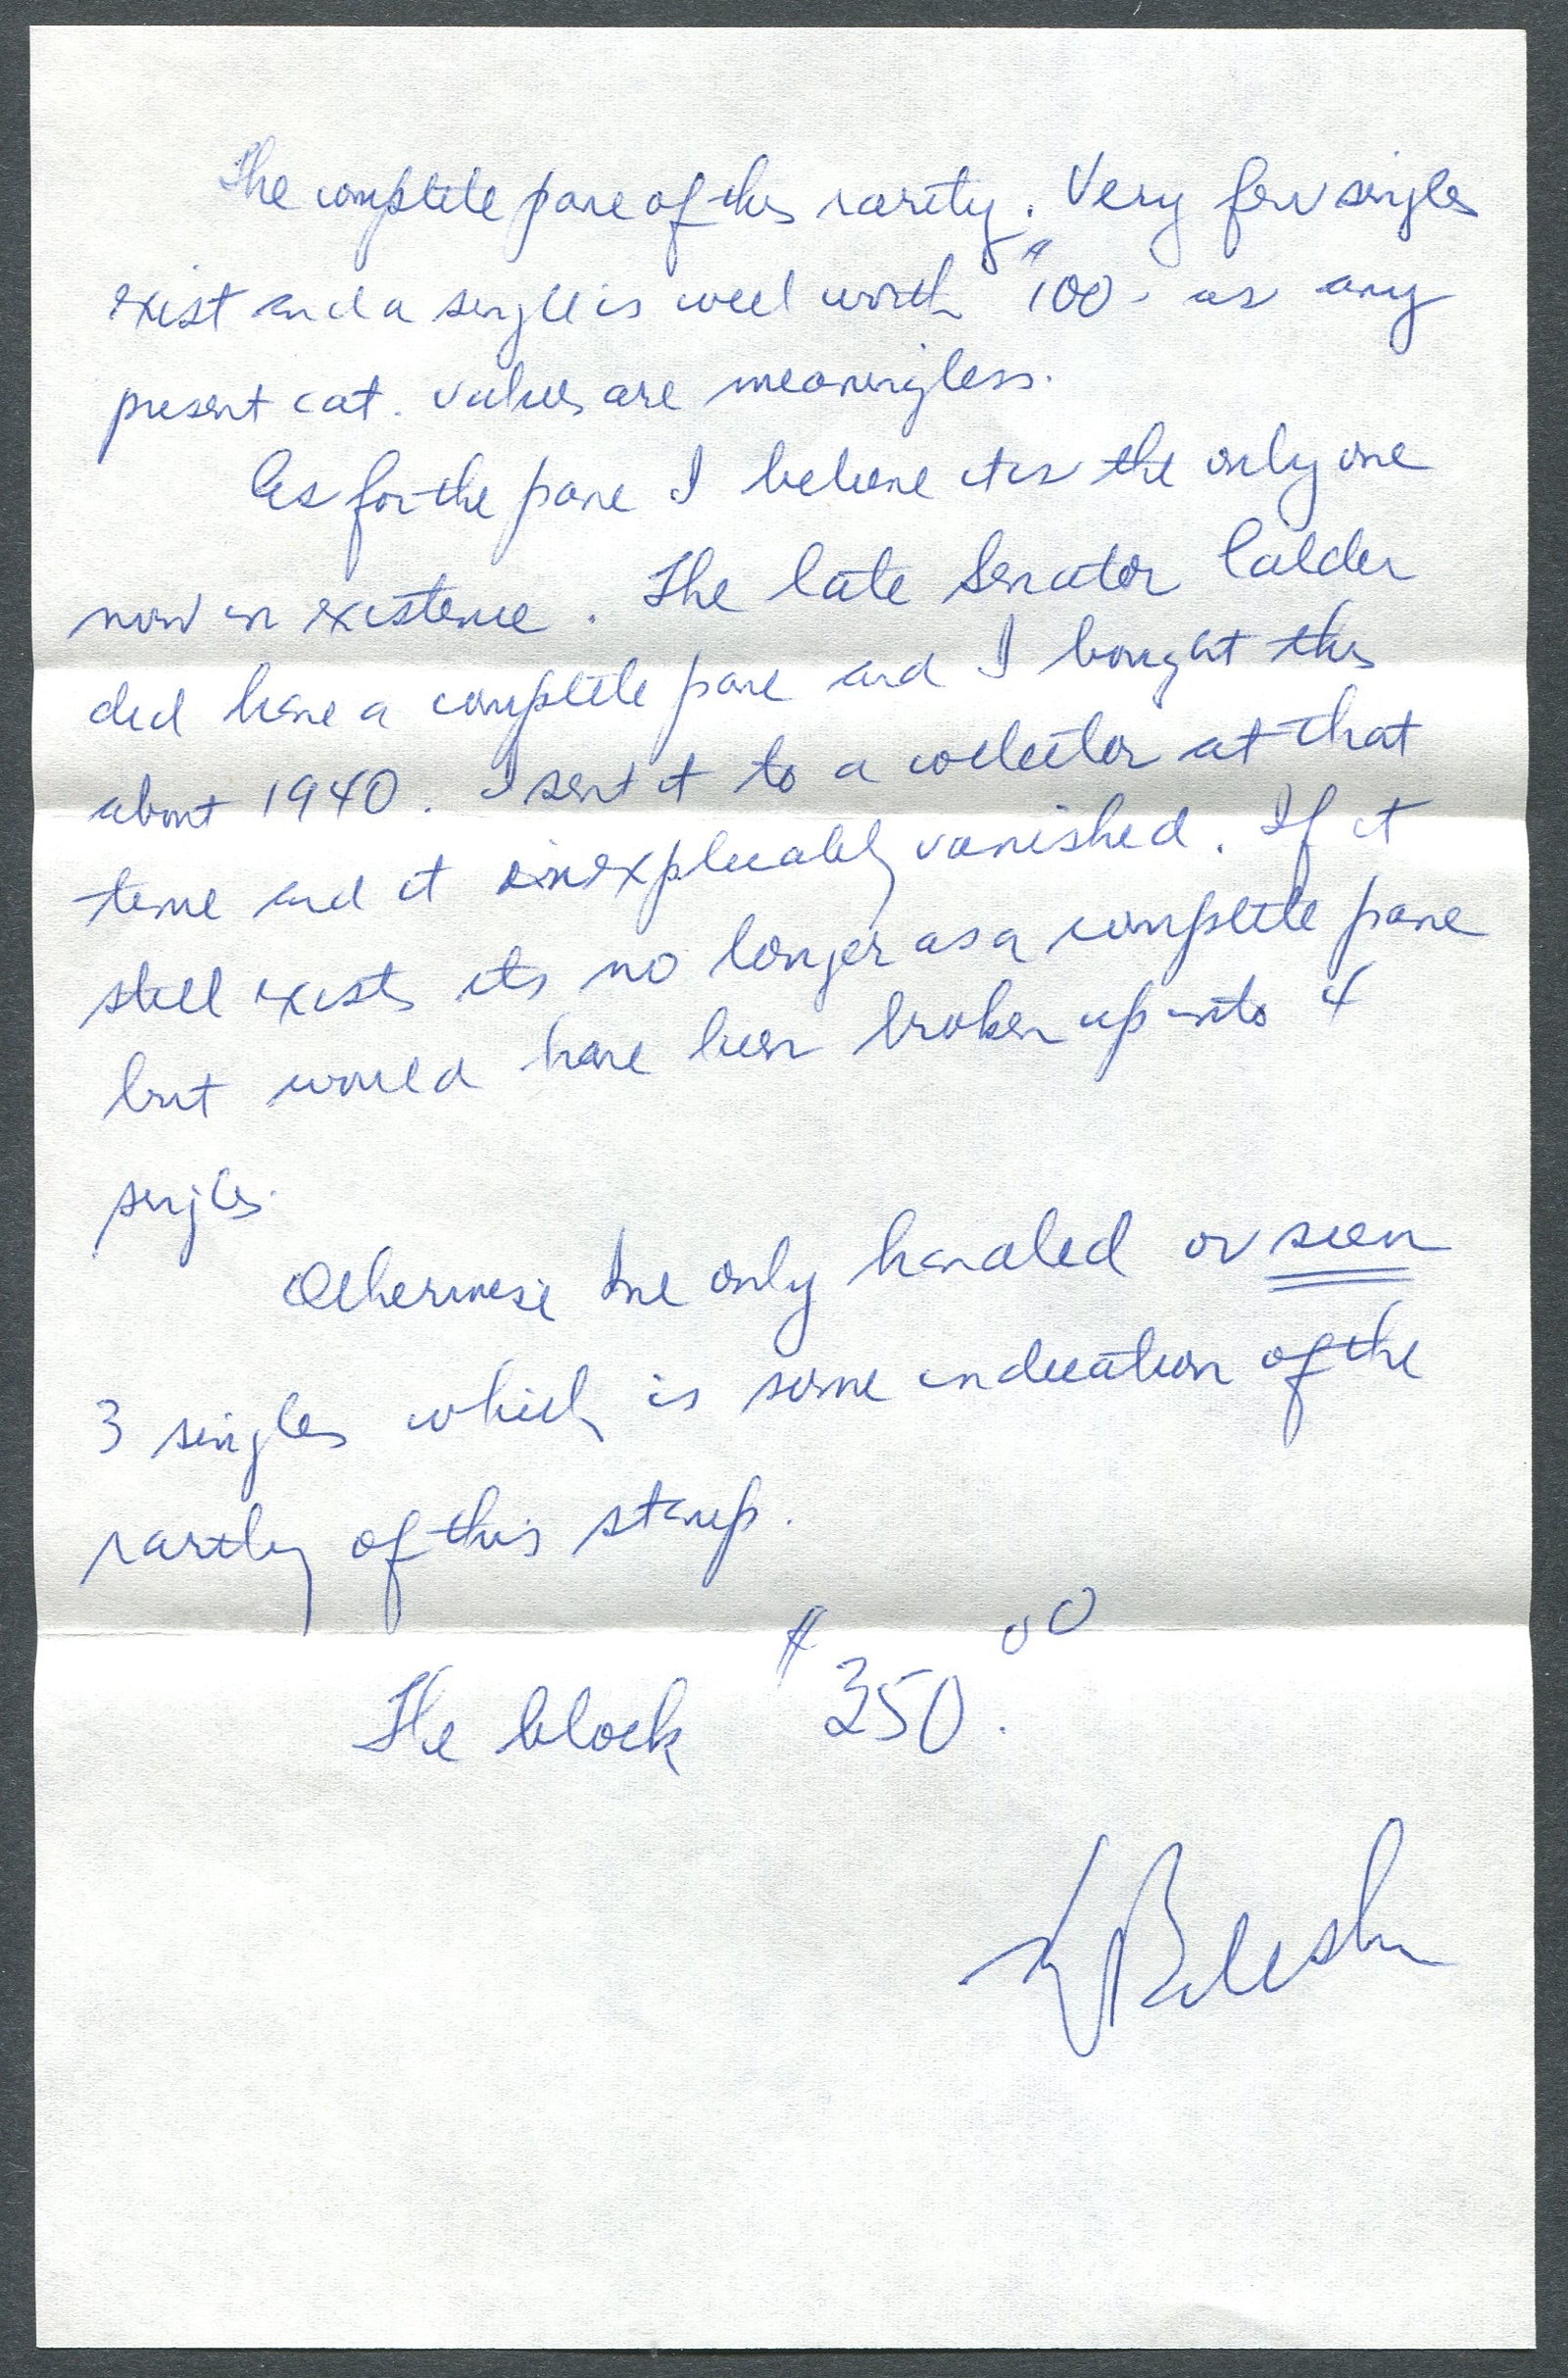 The complete pane of this rarity. Very few singles
exist and a single is well worth $100 - as any
present cat. values are meaningless.
As for the pane I believe it is the only one
now in existence. The late Senator Calder
did have a complete pane and I bought this
about 1940. I sent it to a collector at that
time and it inexplicably vanished. If it
still exists its no longer as a complete pane
but would have been broken up into 4
singles.
Otherwise I've only handled or seen
3 singles which is some indication of the
rarity of this stamp.
The block $350.00